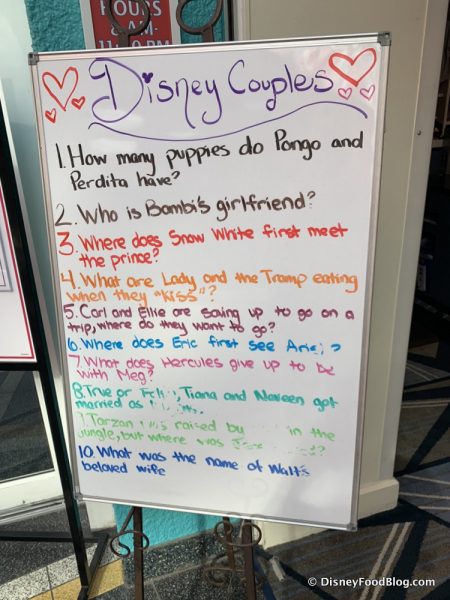 HOURS
8 AM-
PM
Disney Couples
1. How many puppies do Pongo and
Perdita have?
2. Who is Bambi's girlfriend?
3. Where does Snow White first meet
the prince?
4. What are Lady and the Tramp eating
when they "kiss"?
5. Carl and Ellie are saving up to go on a
trip, where do they want to go?
6. Where does Eric first see
7. What does Hercules give up to be
with Meg?
8. True or Tiana and Naveen got
married as
Tarzan was raised by in the
jungle, but where was
10. What was the name of Walt's
beloved wife
© DisneyFoodBlog.com